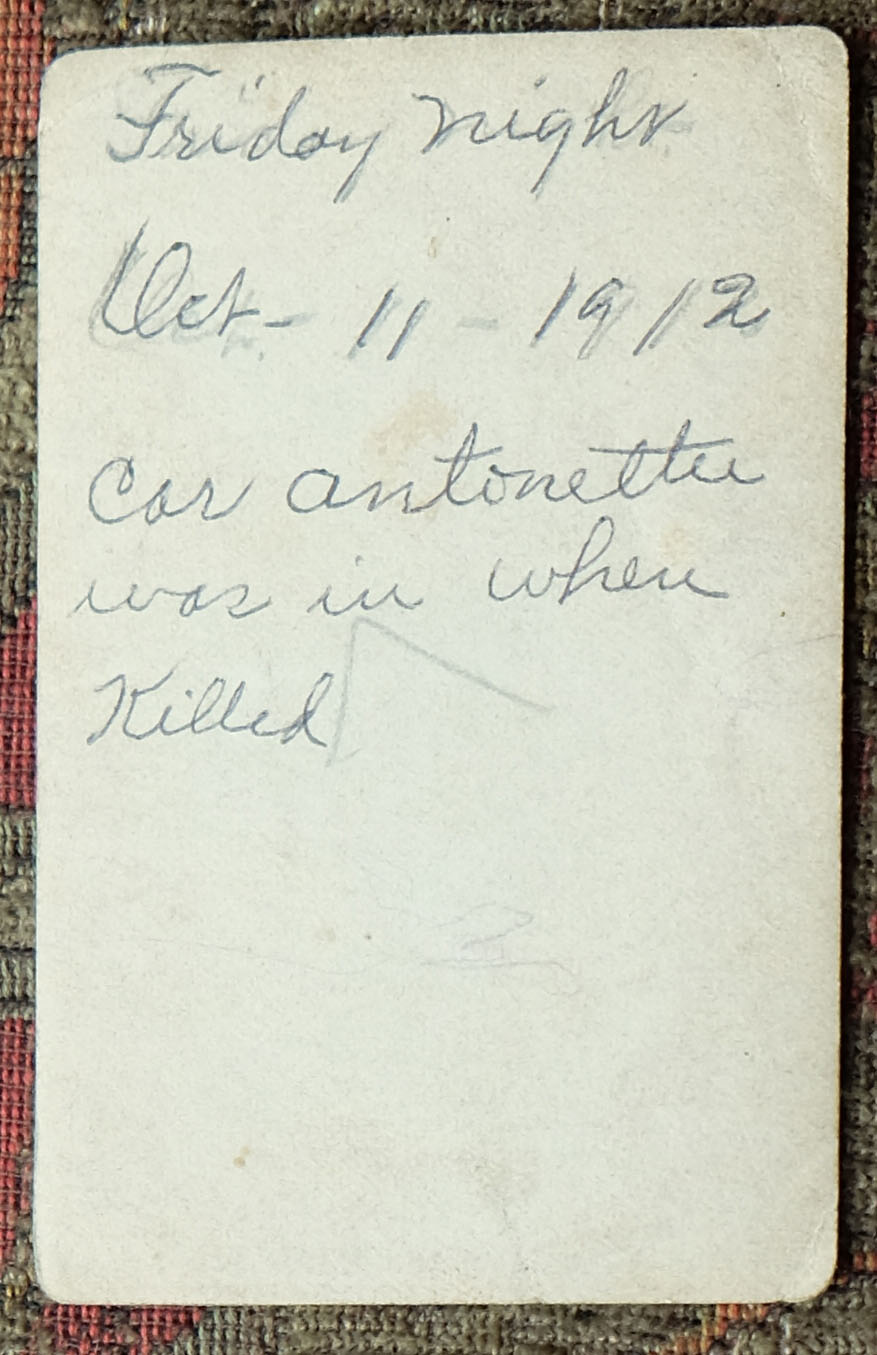 Friday night
Oct - 11 - 1912
Car antonette
was in when
Killed